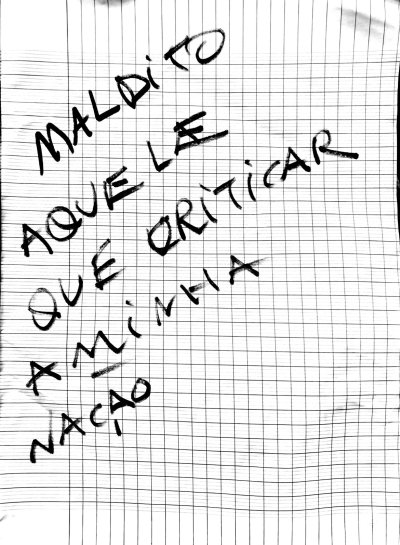 MALDiTO
AQUELE
QUE QRiTiCAR
A MiNHA
NAÇÃO